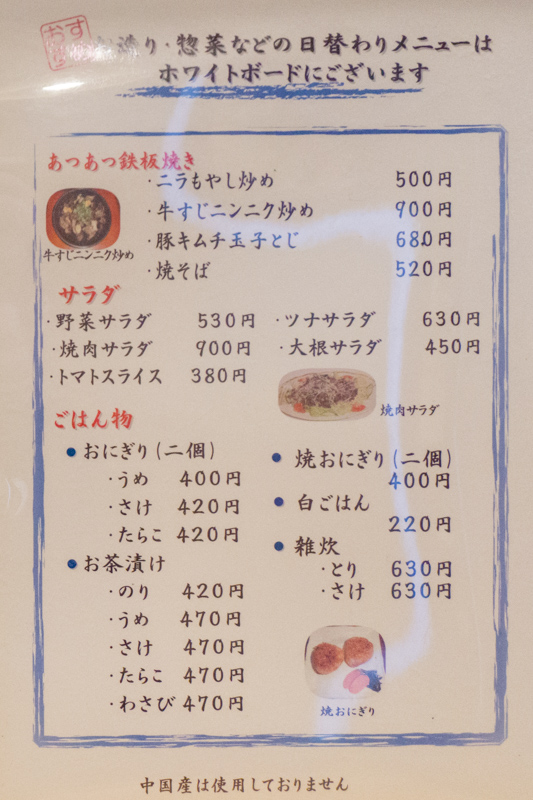 おすすめ
お造り・惣菜などの日替わりメニューは
ホワイトボードにございます
あつあつ鉄板焼き
・ニラもやし炒め 500円
・牛すじニンニク炒め 900円
・豚キムチ玉子とじ 680円
・焼そば 520円
牛すじニンニク炒め
サラダ
・野菜サラダ 530円 ・ツナサラダ 630円
・焼肉サラダ 900円 ・大根サラダ 450円
・トマトスライス 380円
焼肉サラダ
ごはん物
●おにぎり(二個)
・うめ 400円
・さけ 420円
・たらこ 420円
●お茶漬け
・のり 420円
・うめ 470円
・さけ 470円
・たらこ 470円
・わさび 470円
●焼おにぎり(二個)
400円
●白ごはん
220円
●雑炊
・とり 630円
・さけ 630円
焼おにぎり
中国産は使用しておりません